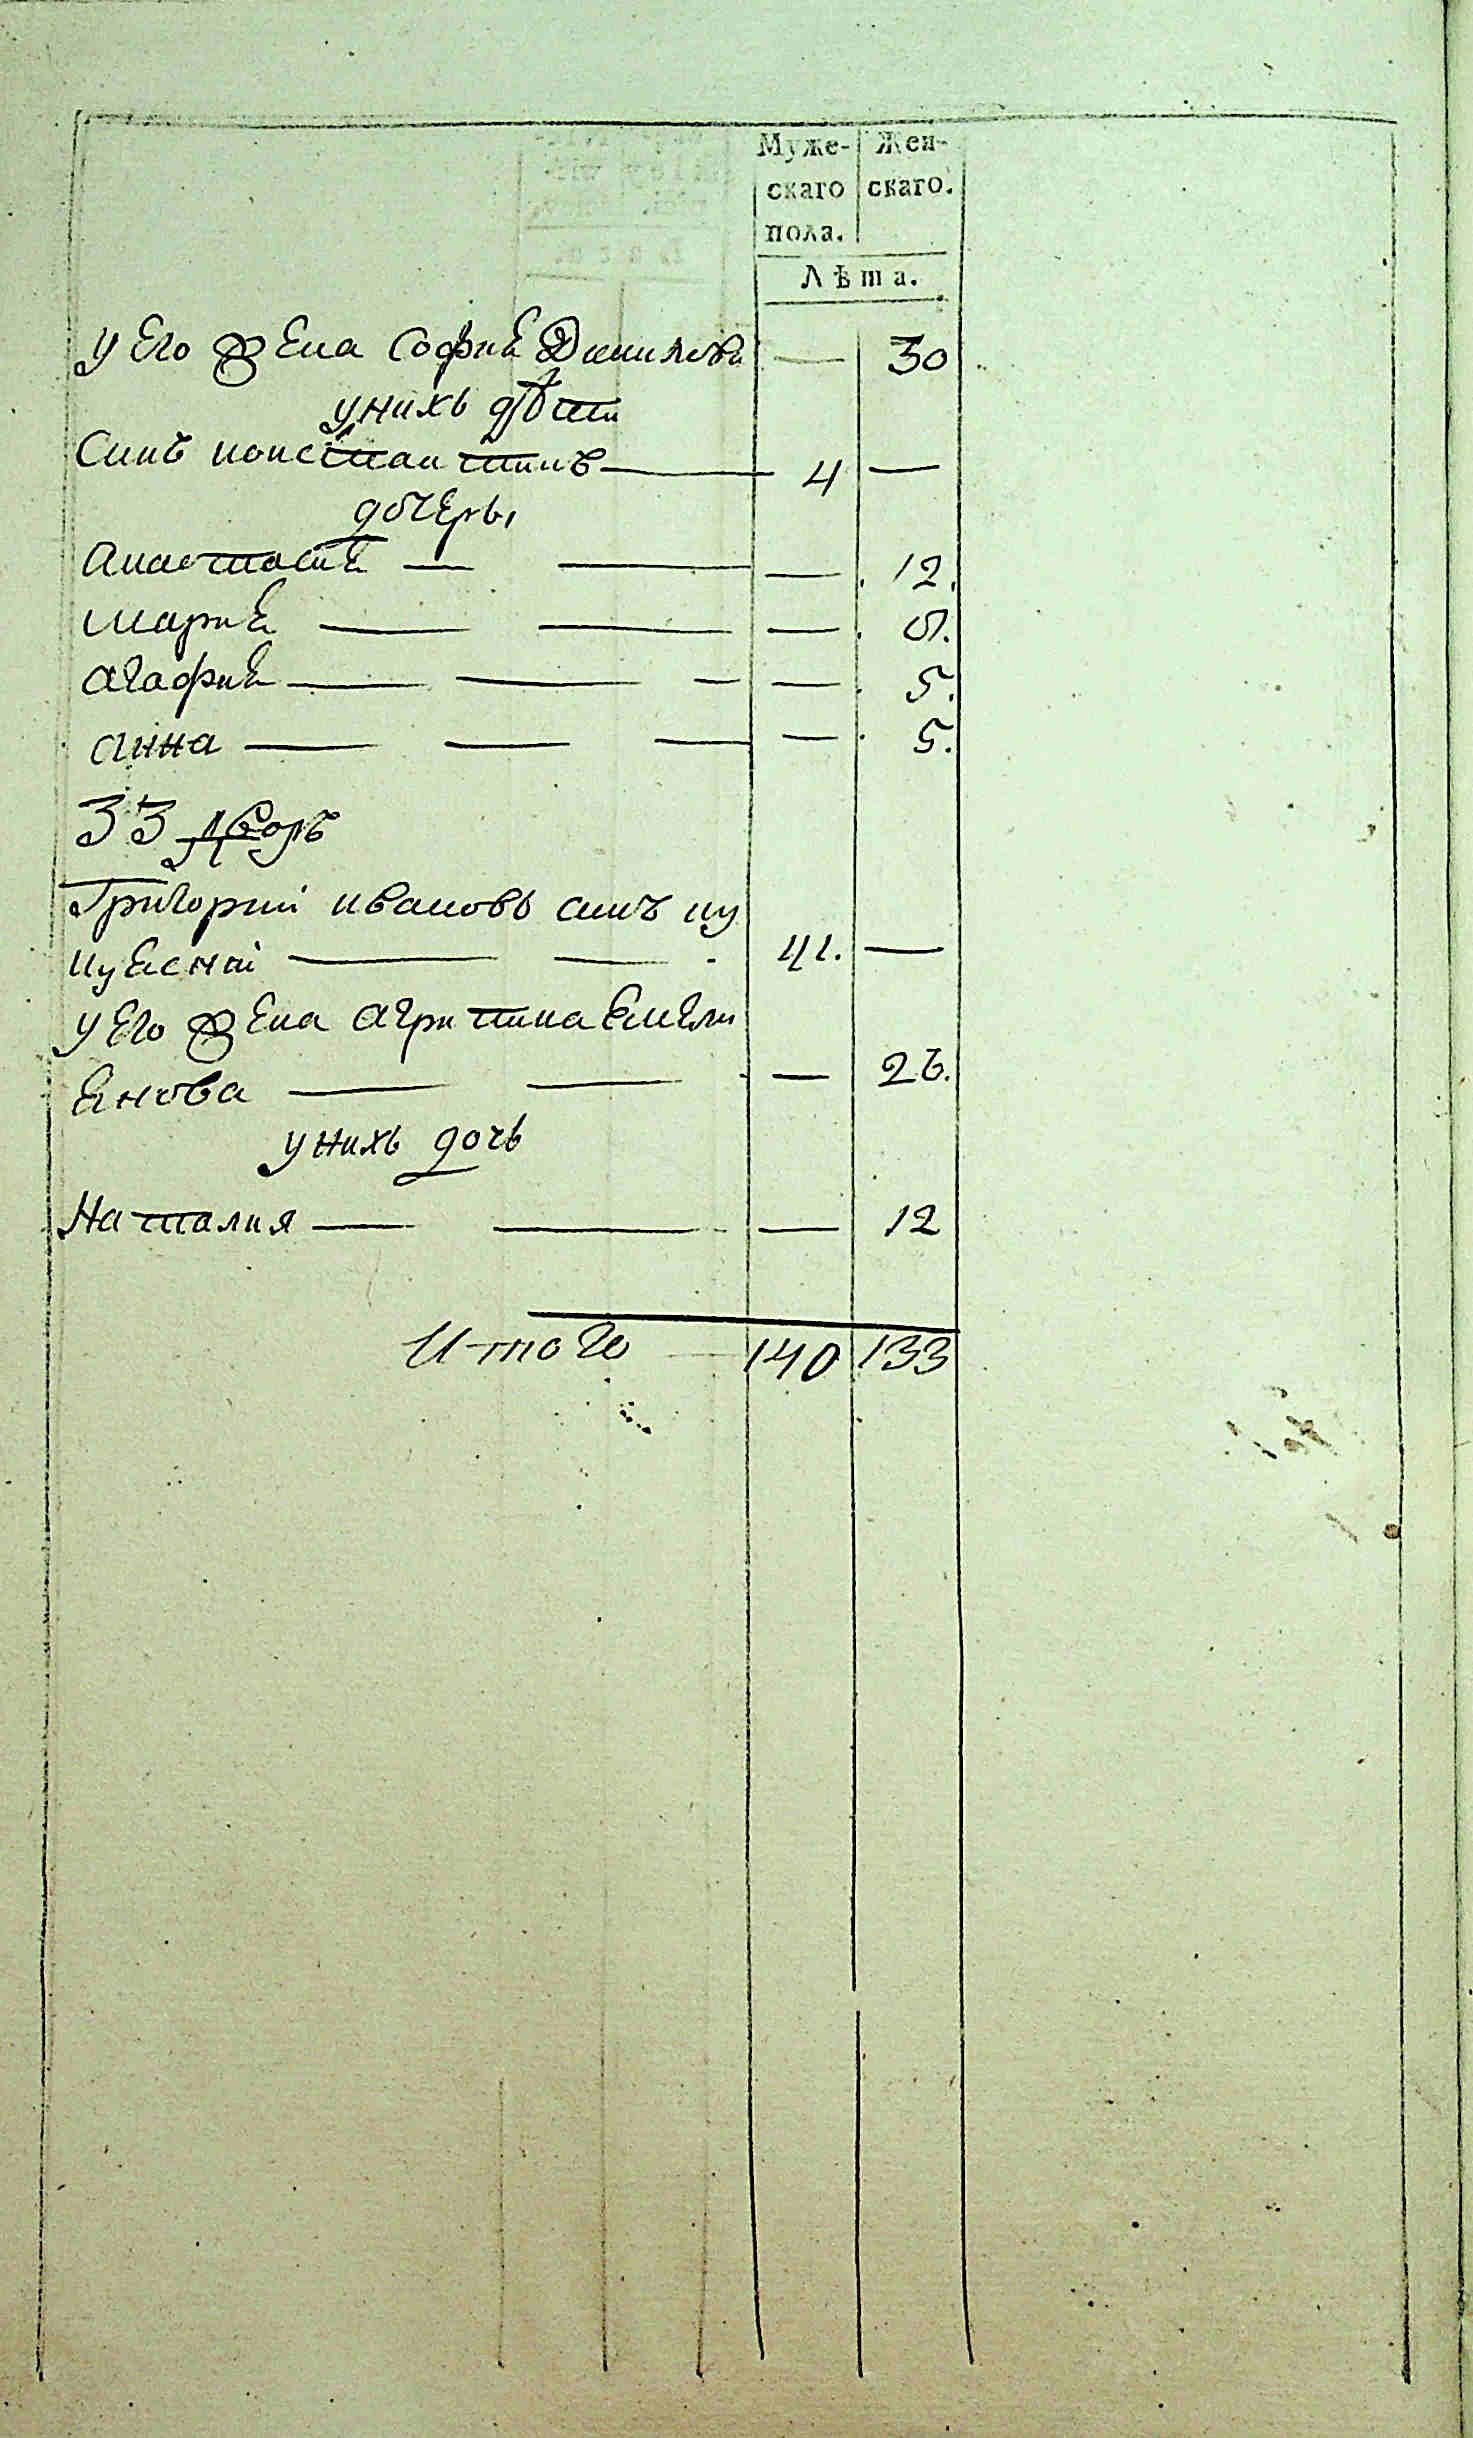 Муже- Жен-
скаго скаго.
пола.
Лѣта.
у Его жена Софиѣ Данилова — 30
унихъ дѣти
Синъ константинъ — 4 —
дочеры
Анастасиѣ — — — 12.
мариѣ — — —
агафиѣ — — — — 5.
анна — — — — 5.
33 дворъ
Григорий ивановъ синъ
— — 41. —
у Его жена агрипина Емели
Енова — — — 26.
у нихъ дочь
Наталия — — — 12
Итого — 140 133